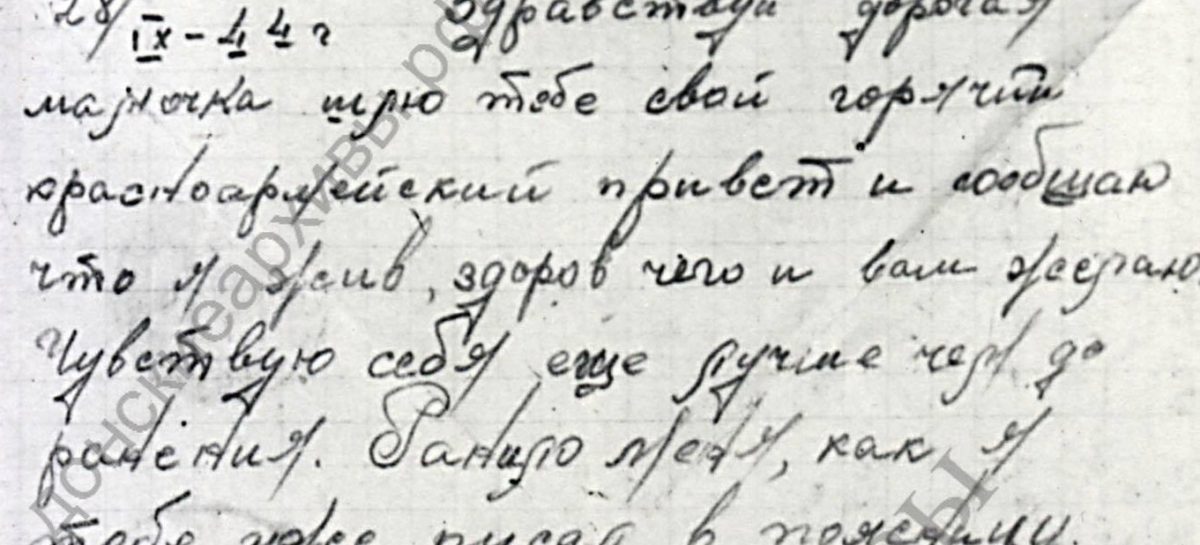 28/IX-44 г Здравствуй дорогая
мамочка шлю тебе свой горячий
красноармейский привет и сообщаю
что я жив, здоров чего и вам желаю
Чувствую себя еще лучше чем до
ранения. Ранило меня, как я
тебе уже писал в поясницу.
донскиеархивы.рф